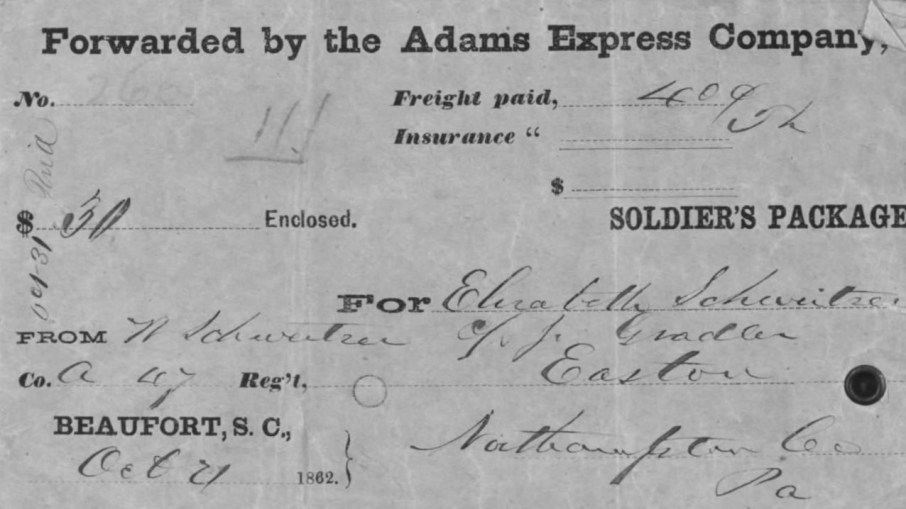 Forwarded by the Adams Express Company,
No.
Freight paid,
111
Insurance "
$
Paid
$ 30 Enclosed.
SOLDIER'S PACKAGE
Oct 31
For Elizabeth Schweitzer
FROM W Schweitzer
Co. A 47 Reg't,
Easton
BEAUFORT, S. C.,
Oct 21 1862.
Northampton Co
Pa